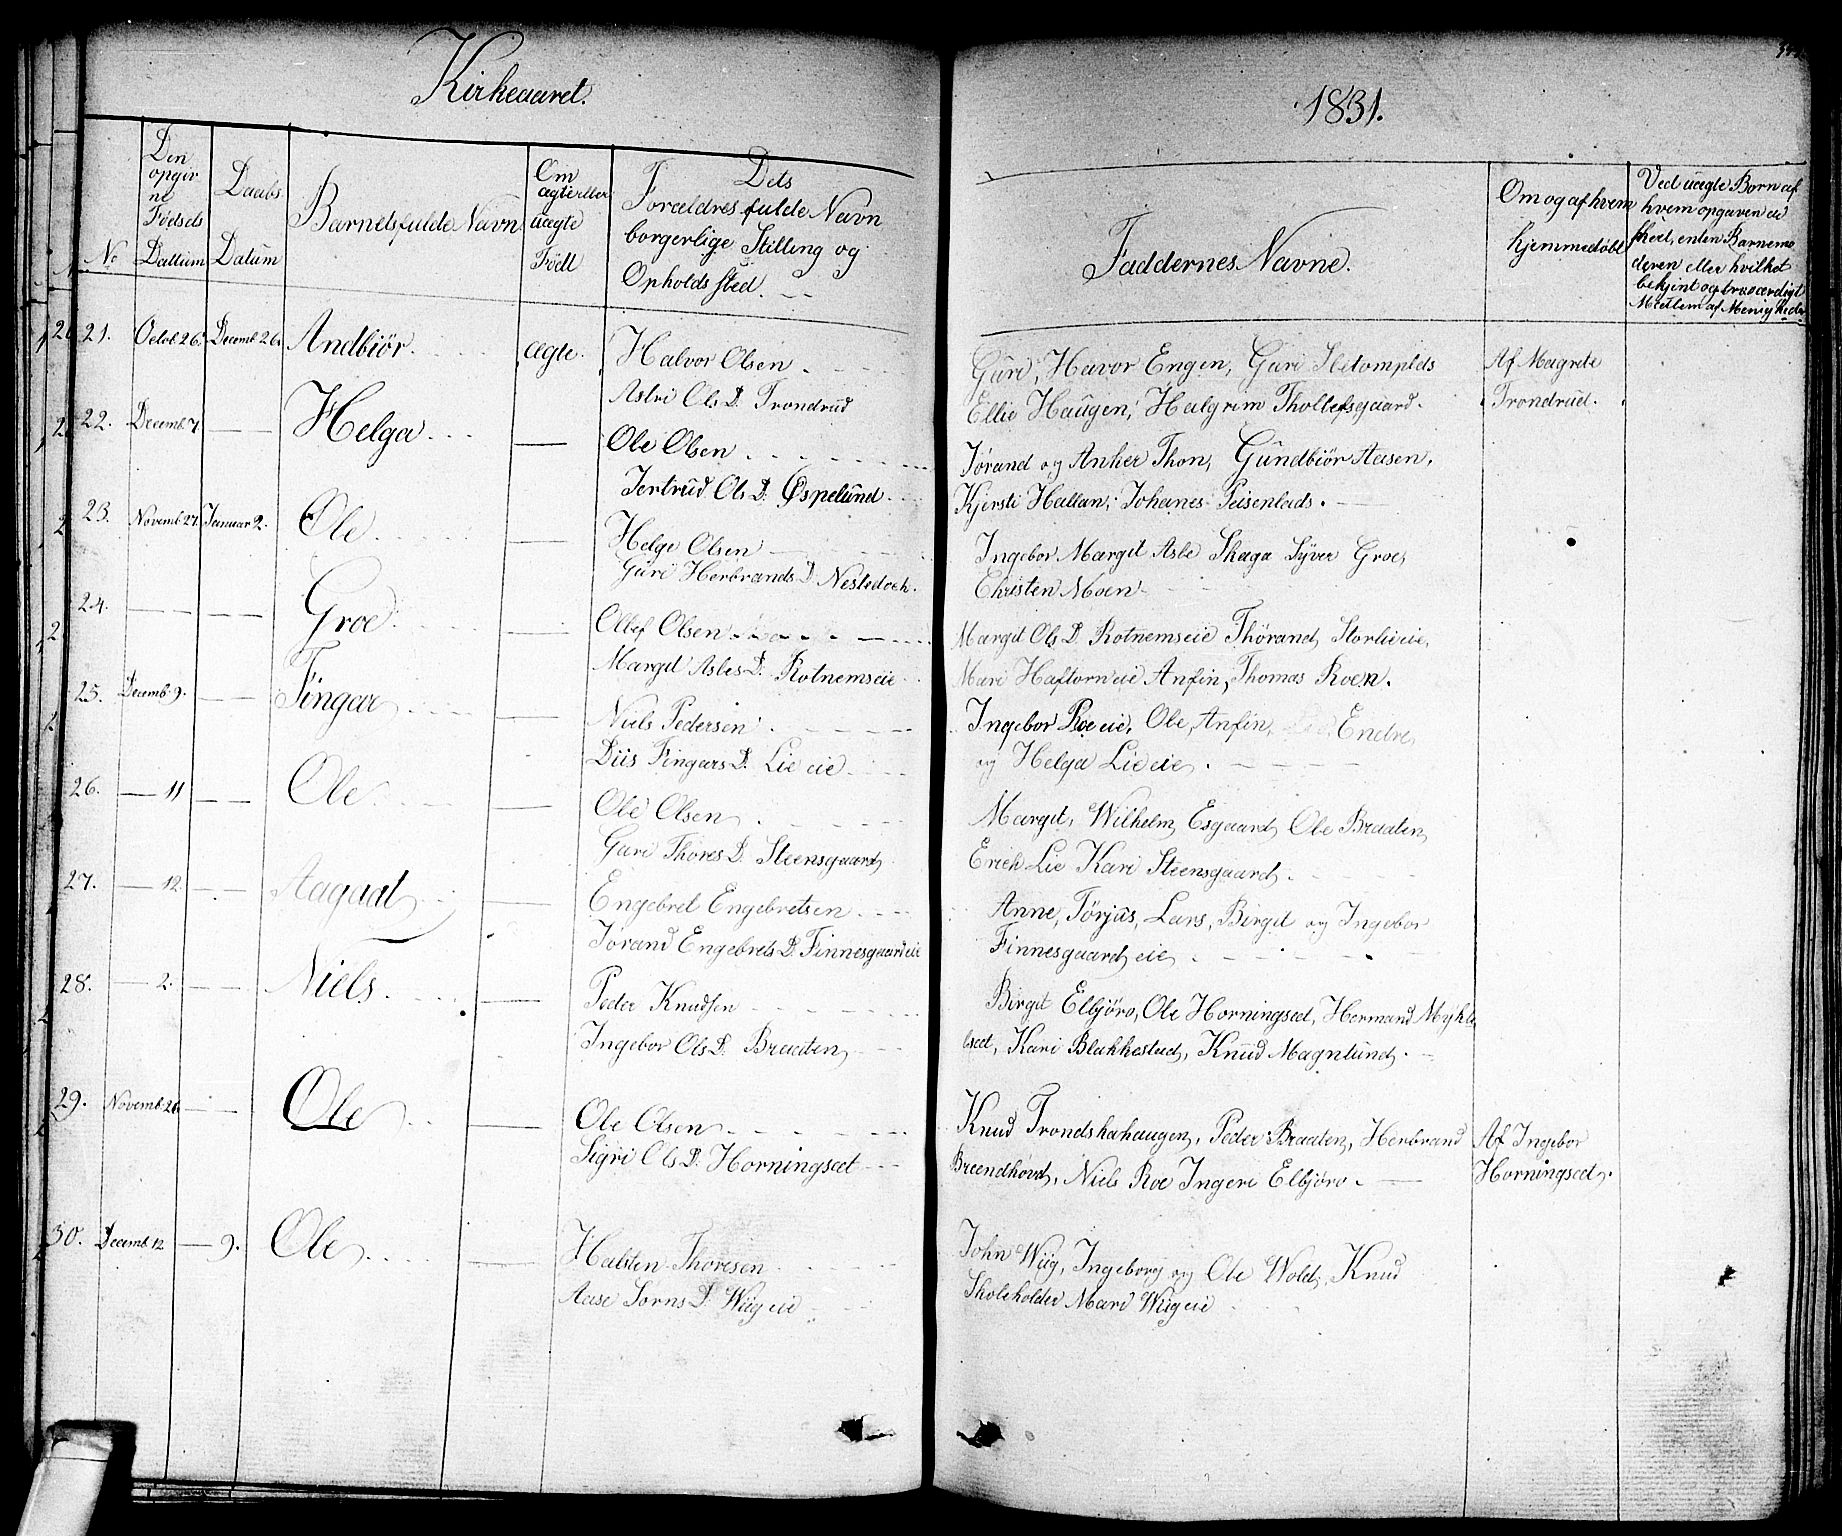 Kirkeaaret.
1831.
No
Den opgivne Födsels Dattum
Daabs Datum
Barnets fulde Navn
Om ægte eller uægte Födt
Dets Forældres fulde Navn borgerlige Stilling og Opholds sted.
Faddernes Navne.
Om og af hvem hjemmedöbt
Ved uægte Börn af
hvem opgaven er
skeet, enten Barnemo
deren eller hvilket
bekjent og troværdigt
Medlem af Menigheden
21. Octob. 26. Decemb. 26. Andbiör. ægte. Halvor Olsen
Astri Ols D. Trondrud
Guri, Havor Engen, Guri
Ellie Haugen, Halgrim Thollefsgaard.
Af Magrete
Trondrud.
22. Decemb. 7. — Helga — Ole Olsen
Jertrud Ols D. Öspelund
Jörand og Anker Thon, Gundbiör Aasen,
Kjersti Hallan, Johanes Peisenlads.
23. Novemb. 27. Januar 2. Ole — Helge Olsen
Guri Herbrands D. Nestedoek.
Ingebor Margit Asle Skaga Syver Groe,
Christen Moen
24. — — Groe — Ollef Olsen
Margit Asles D. Rotnemseie
Margit Ols D. Rotnemseie Thörand, Storlieeie,
Mari Haftorn eie Anfin, Thomas Roen.
25. Decemb. 9. — Fingar — Niels Pedersen
Diis Fingars D. Lie eie
Ingebor Roe eie, Ole, Anfin, Endre,
og Helga Lie eie.
26. — 11 — Ole — Ole Olsen
Guri Thores D. Steensgaard
Margit, Wilhelm, Esgaard, Ole Braaten,
Erich Lie Kari Steensgaard.
27. — 12. — Aagaat — Engebret Engebretsen
Jorand Engebrets D. Finnesgaard eie
Anne, Törjus, Lars, Birgit og Ingebor
Finnesgaard eie
28. — 2. — Niels — Peder Knudsen
Ingebor Ols D. Braaten
Birgit Elbjöro, Ole Horningsæt, Hermand Mykle
bset, Kari Blakkestad, Knud Magnlund.
29. Novemb. 26 — Ole — Ole Olsen
Sigri Ols D. Horningsæt
Knud Trondshahaugen, Peder Braaten, Herbrand
Brændhövd, Niels Roe Ingeri Elbjöro.
Af Ingebor
Horningsæt.
30. Decemb. 12 — 9. Ole — Halsten Thoresen
Aase Torns D. Wiig eie
John Wiig, Ingeborg og Ole Wold, Knud
Skoleholder Mari Wiig eie